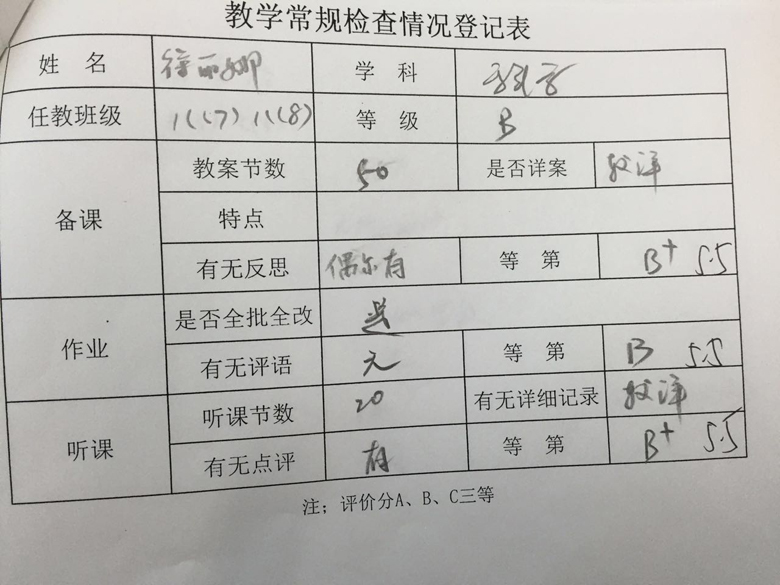 教学常规检查情况登记表
姓 名 徐丽娜 学 科
任教班级 11(7) 11(8) 等 级 B
备课 教案节数 50 是否详案 较详
特点
有无反思 偶尔有 等 第 B+ 5.5
作业 是否全批全改 是
有无评语 无 等 第 B 5.5
听课 听课节数 20 有无详细记录 较详
有无点评 有 等 第 B+ 5.5
注；评价分A、B、C三等